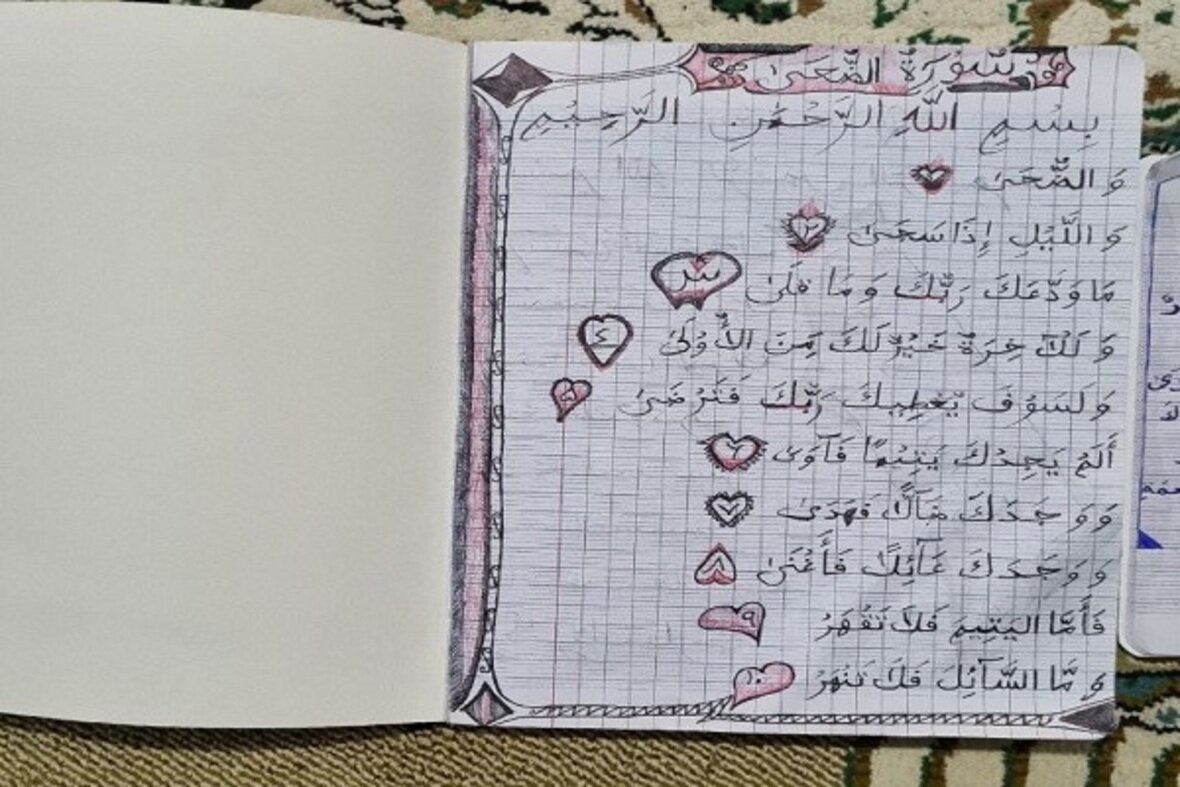 سُورَةُ الضُّحَىٰ
بِسْمِ اللَّهِ الرَّحْمَٰنِ الرَّحِيمِ
وَ الضُّحَىٰ ١
وَ اللَّيْلِ إِذَا سَجَىٰ ٢
مَا وَدَّعَكَ رَبُّكَ وَ مَا قَلَىٰ ٣
وَ لَلْآخِرَةُ خَيْرٌ لَكَ مِنَ الْأُوْلَىٰ ٤
وَ لَسَوْفَ يُعْطِيكَ رَبُّكَ فَتَرْضَىٰ ٥
أَلَمْ يَجِدْكَ يَتِيْمًا فَآوَىٰ ٦
وَ وَجَدَكَ ضَآلًّا فَهَدَىٰ ٧
وَ وَجَدَكَ عَآئِلًا فَأَغْنَىٰ ٨
فَأَمَّا الْيَتِيمَ فَلَا تَقْهَرْ ٩
وَ مَّا السَّآئِلَ فَلَا تَنْهَرْ ١٠